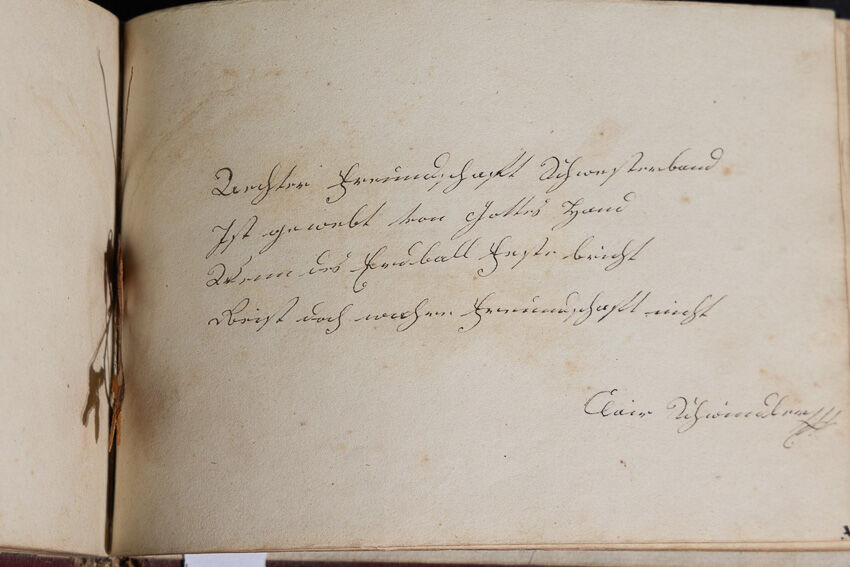 Aechter Freundschaft Schwesterband
Ist gewebt von Gottes Hand
Wenn des Erdball Feste bricht
Reist doch wahre Freundschaft nicht
Clair